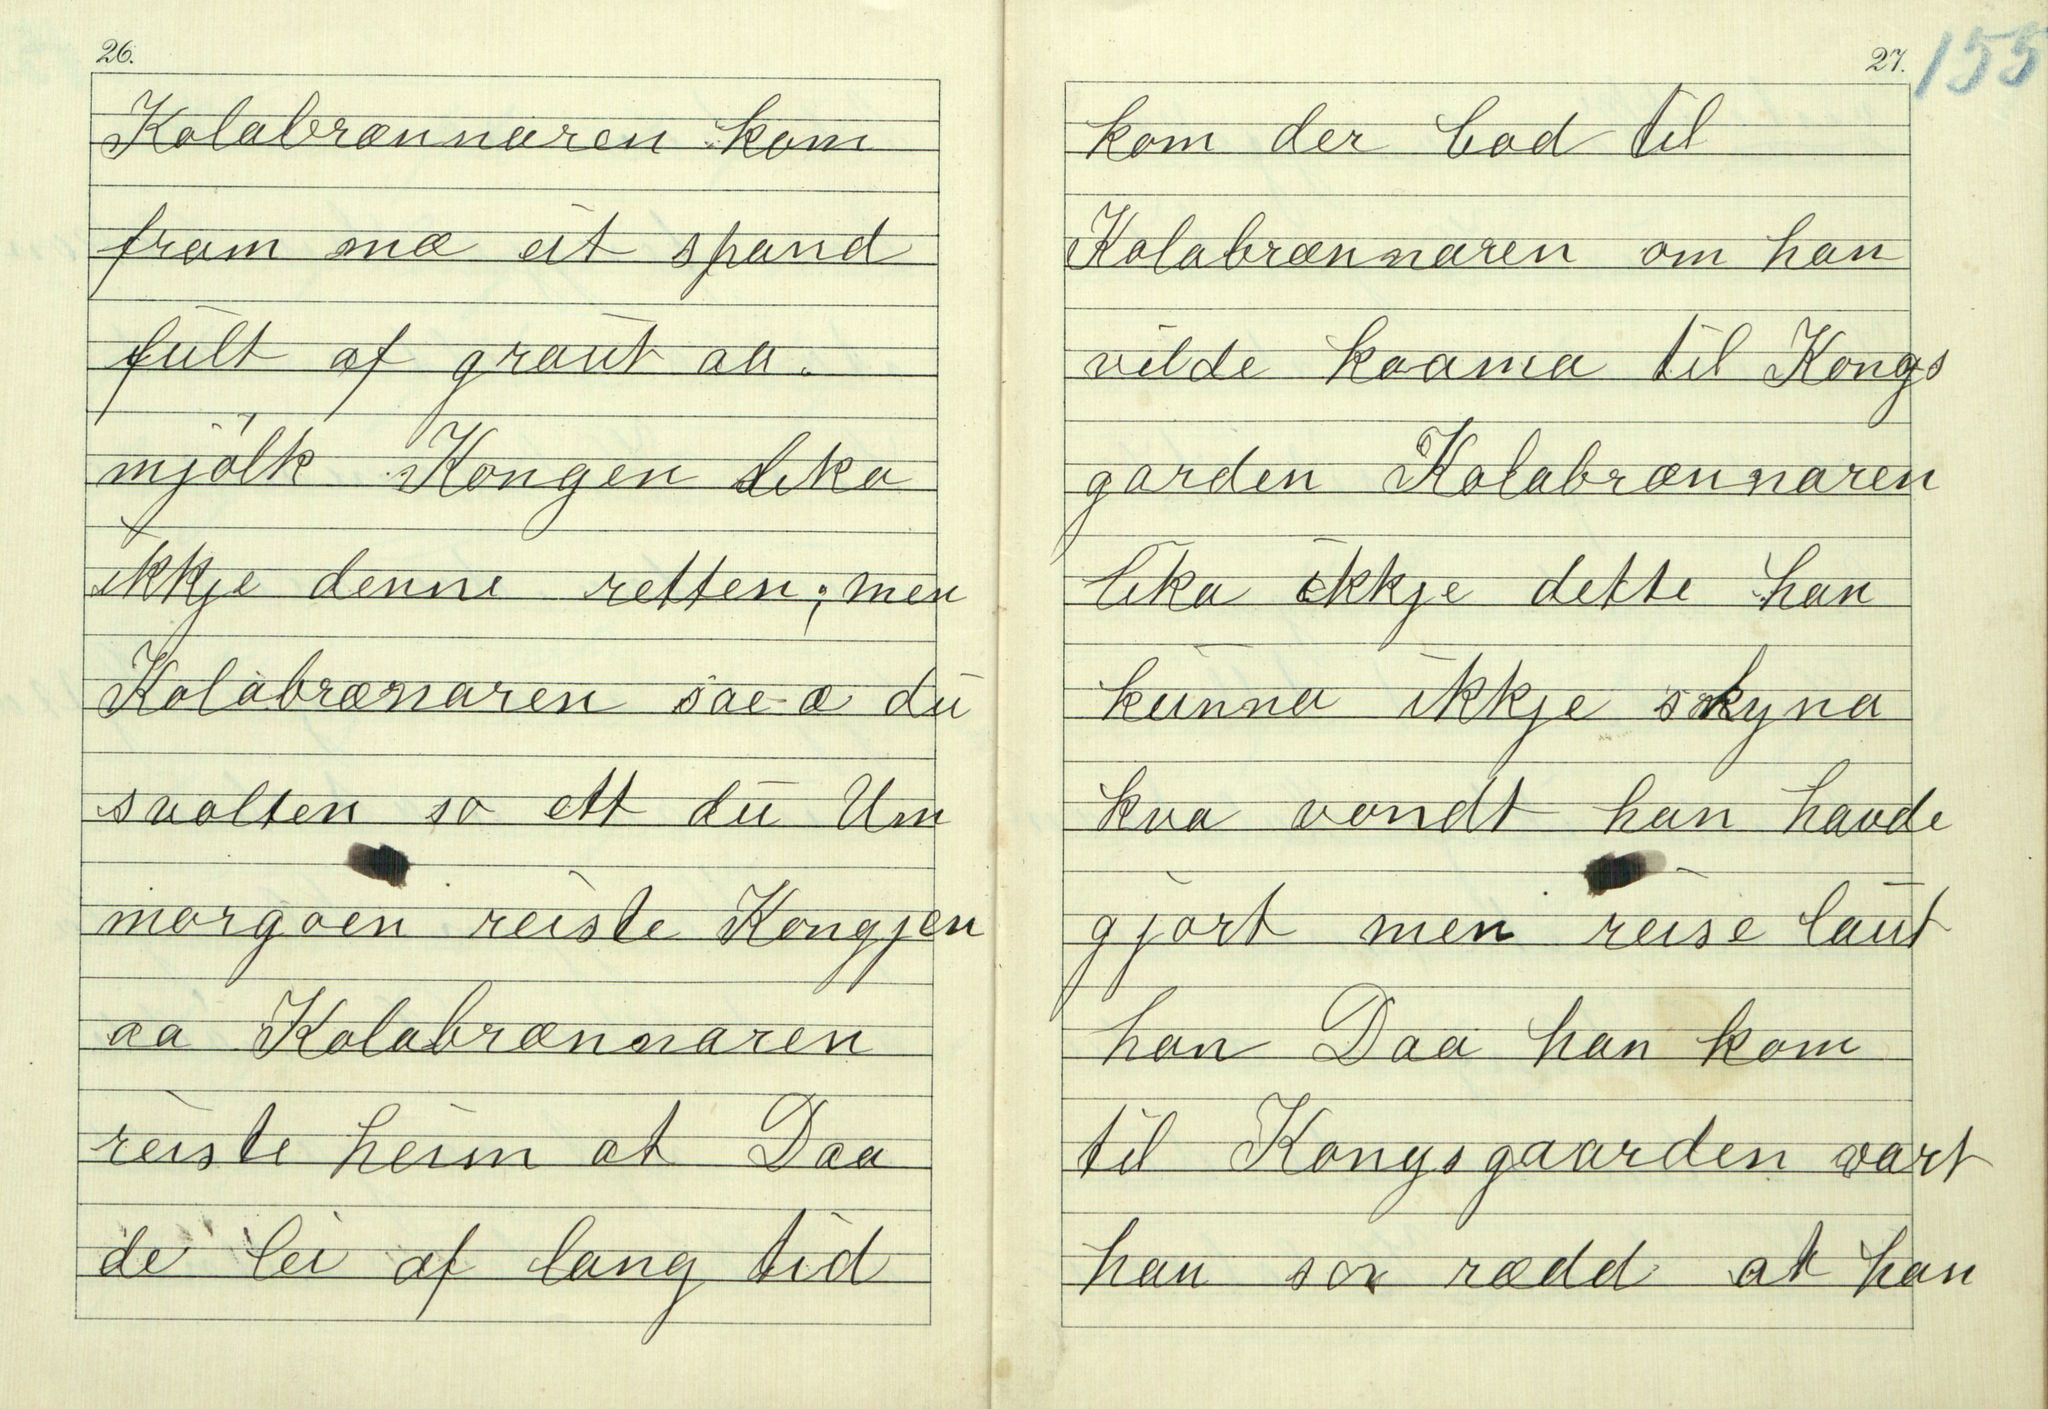 26.
Kolabrænnaren kom
fram mæ eit spand
fult af graut aa.
mjölk Kongen leka
ikkje denne retten; men
Kolabrænaren sae æ du
svolten so ett du Um
morgoen reiste Kongjen
aa Kolabrænnaren
reiste heim at Daa
de lei af lang tid
27.
155
kom der bod til
Kolabrænnaren om han
vilde kaama til Kongs
garden Kolabrænnaren
leka ikkje dette han
kunna ikkje skyna
kva vondt han havde
gjort men reise laut
han Daa han kom
til Kongsgaarden vart
han so rædd at han